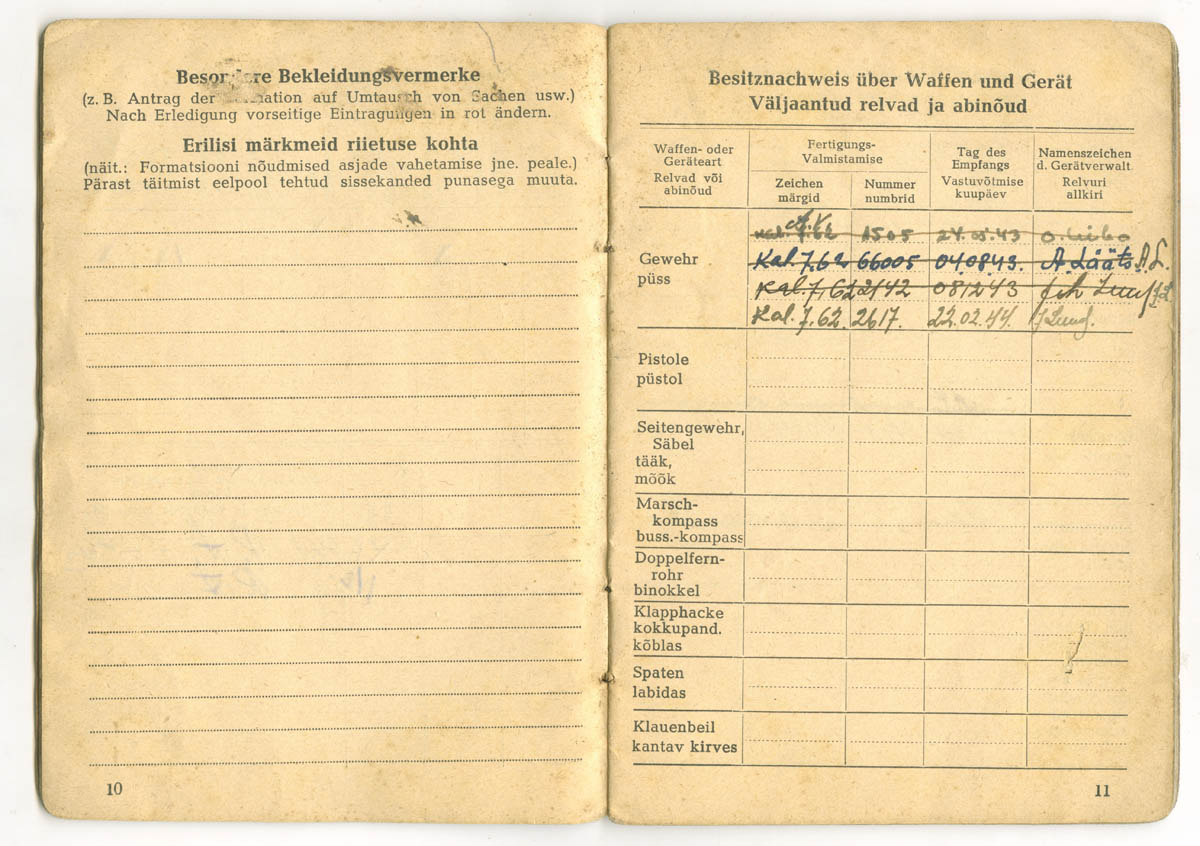 Besondere Bekleidungsvermerke
(z. B. Antrag der Formation auf Umtausch von Sachen usw.)
Nach Erledigung vorseitige Eintragungen in rot ändern.
Erilisi märkmeid riietuse kohta
(näit.: Formatsiooni nõudmised asjade vahetamise jne. peale.)
Pärast täitmist eelpool tehtud sissekanded punasega muuta.
10
Besitznachweis über Waffen und Gerät
Väljaantud relvad ja abinõud
Waffen- oder
Geräteart
Relvad või
abinõud
Fertigungs-
Valmistamise
Zeichen
märgid
Nummer
numbrid
Tag des
Empfangs
Vastuvõtmise
kuupäev
Namenszeichen
d. Gerätverwalt.
Relvuri
allkiri
Gewehr
püss
Kal. 7,62 1505 24.05.43
Kal. 7,62 66005 04.08.43. A. Lääts A.L.
Kal. 7,62 2142 081243
Kal. 7.62. 2617. 22.02.44.
Pistole
püstol
Seitengewehr,
Säbel
tääk,
mõõk
Marsch-
kompass
buss.-kompass
Doppelfern-
rohr
binokkel
Klapphacke
kokkupand.
kõblas
Spaten
labidas
Klauenbeil
kantav kirves
11